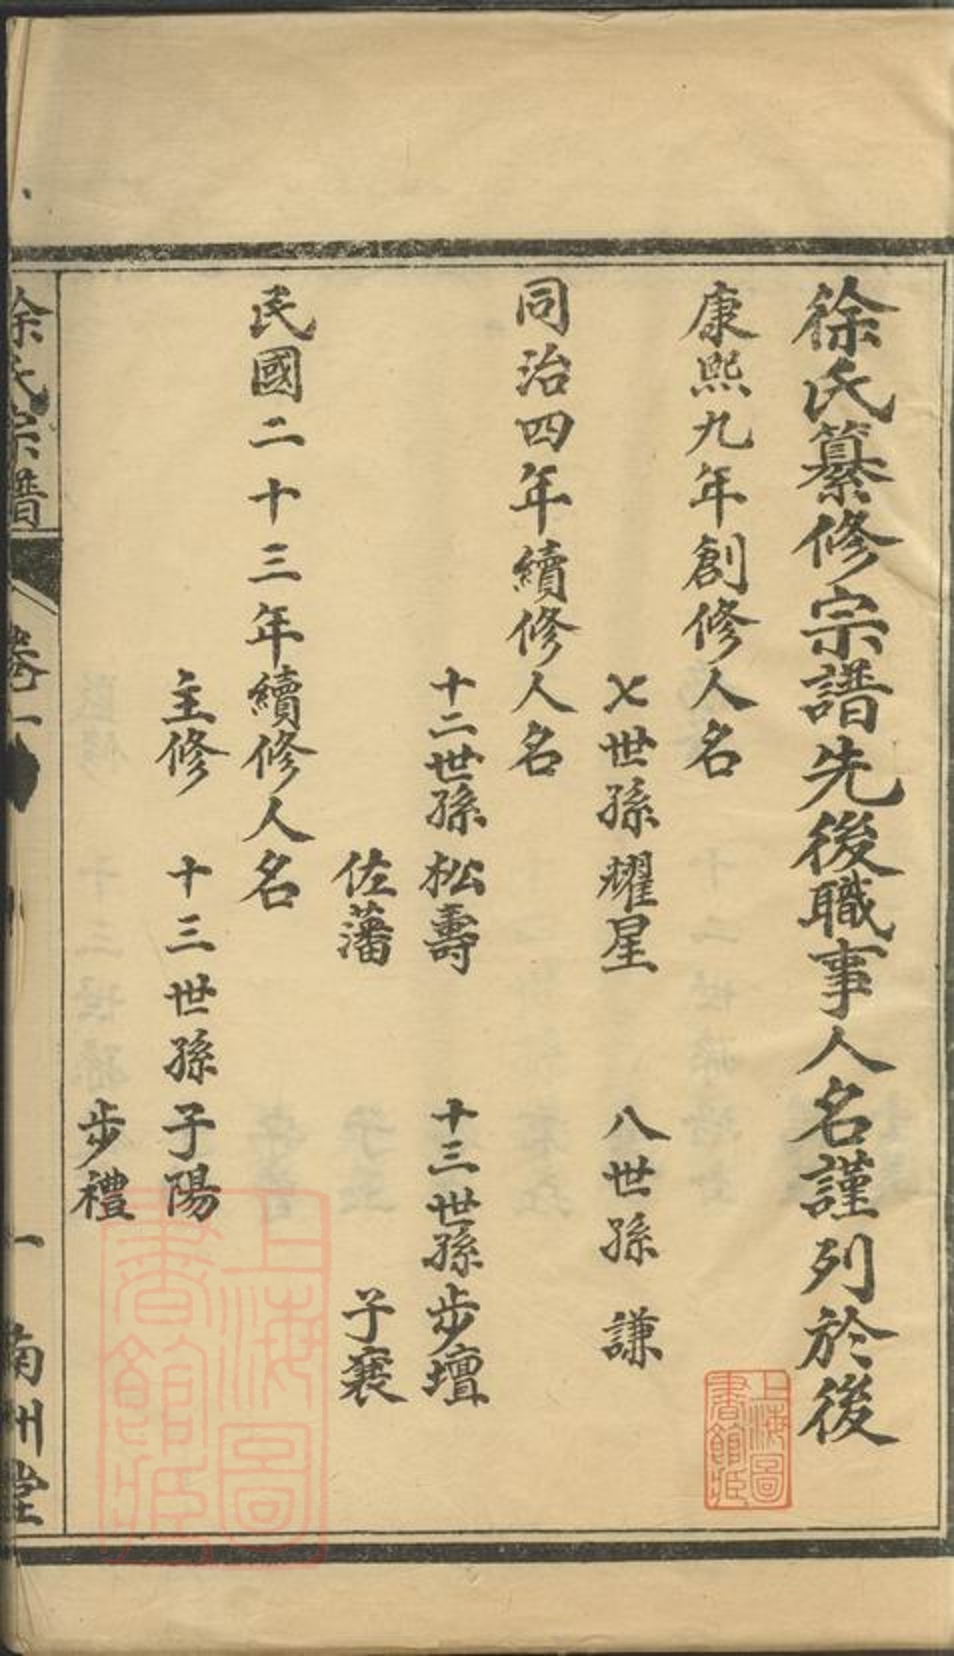 徐氏纂修宗譜先後職事人名謹列於後
康熙九年創修人名
七世孫 耀星 八世孫 謙
同治四年續修人名
十二世孫 松壽 十三世孫 步壇
佐藩 子襄
民國二十三年續修人名
主修 十三世孫 子陽
步禮
徐氏宗譜 卷一 一 南州堂
上海圖書館藏